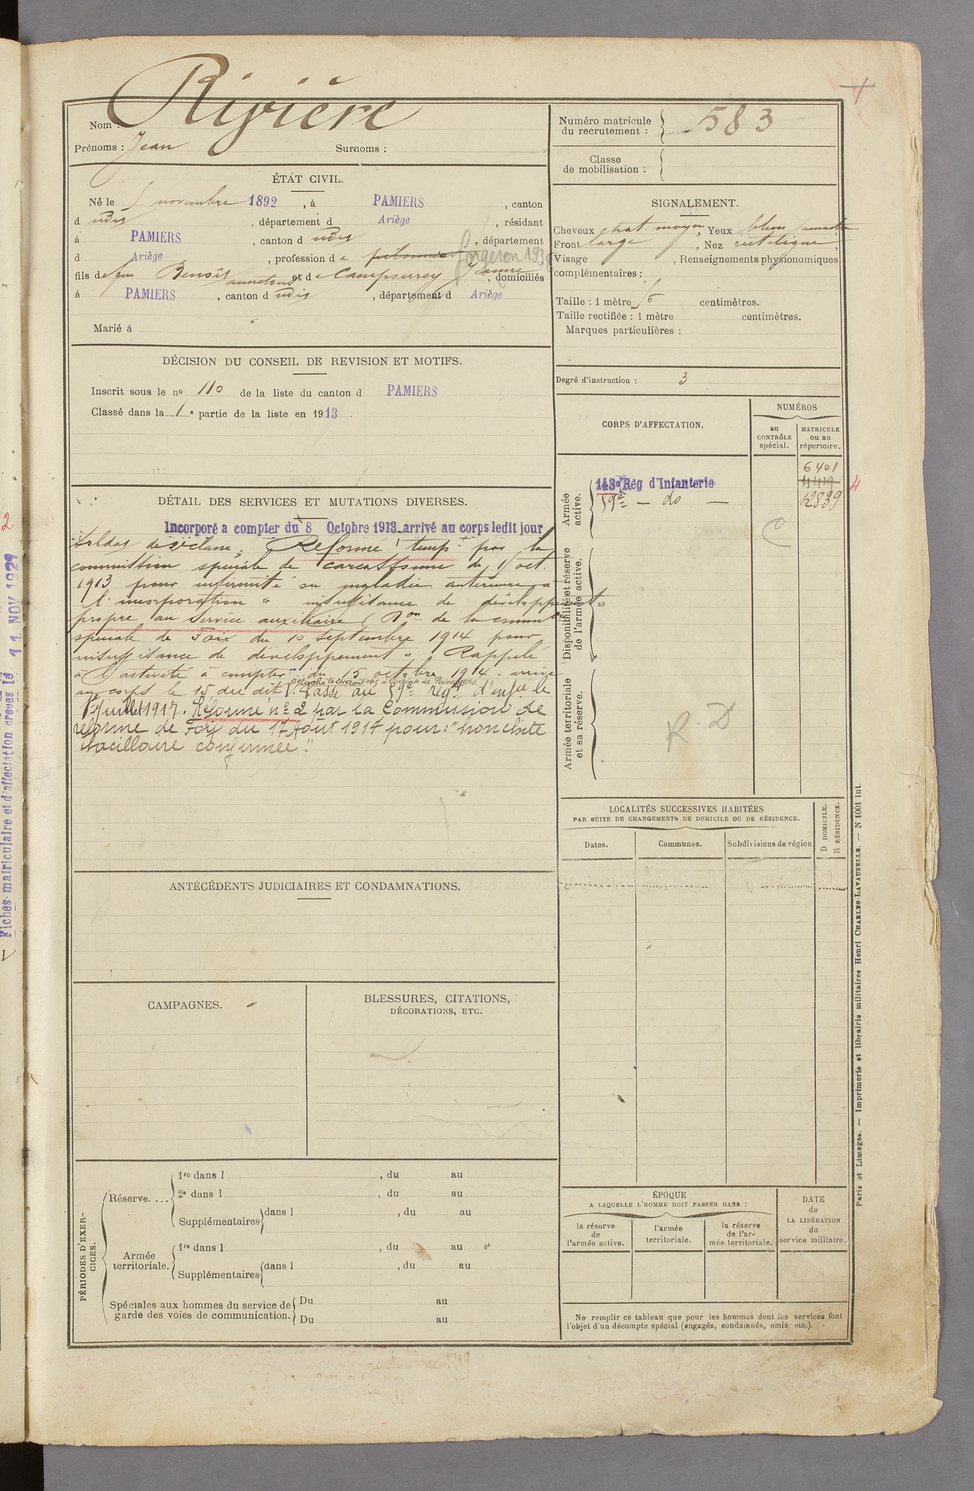 Rivière
Nom :
Prénoms : Jean Surnoms :
ÉTAT CIVIL.
Né le novembre 1892, à PAMIERS, canton
d udis, département d Ariège, résidant
à PAMIERS, canton d udis, département
d Ariège, profession de forgeron
fils de feu Benoît et de Campourcy Jeanne, domiciliés
à PAMIERS, canton d udis, département d Ariège
Marié à
DÉCISION DU CONSEIL DE REVISION ET MOTIFS.
Inscrit sous le no 110 de la liste du canton d PAMIERS
Classé dans la 1e partie de la liste en 1913.
DÉTAIL DES SERVICES ET MUTATIONS DIVERSES.
Incorporé a compter du 8 Octobre 1913 arrivé au corps ledit jour
soldat de 2e classe, Réformé tempre par la
commission spéciale de Carcassonne du oct.
1913 pour infirmité ou maladie antérieure à
l'incorporation " insuffisance de développement "
propre au service auxiliaire (Don de la common
spéciale de Foix du 10 septembre 1914 pour
insuffisance de développement ". Rappelé
à l'activité à compter du 15 octobre 1914. arrivé
au corps le 15 du dit. Passé au 59e régt d'infie le
1er Juillet 1917. Réformé no 2 par la Commission de
réforme de Foix du 17 Août 1917 pour: "bronchite
bacillaire confirmée."
ANTÉCÉDENTS JUDICIAIRES ET CONDAMNATIONS.
CAMPAGNES.
BLESSURES, CITATIONS,
DÉCORATIONS, ETC.
PÉRIODES D'EXERCICES.
Réserve....
1re dans l , du au
2e dans l , du au
Supplémentaires dans l , du au
Armée territoriale.
1re dans l , du au
Supplémentaires dans l , du au
Spéciales aux hommes du service de garde des voies de communication.
Du au
Du au
Numéro matricule du recrutement : 583
Classe de mobilisation :
SIGNALEMENT.
Cheveux chat moyen, Yeux bleu
Front large, Nez rectiligne,
Visage , Renseignements physionomiques
complémentaires :
Taille : 1 mètre centimètres.
Taille rectifiée : 1 mètre centimètres.
Marques particulières :
Degré d'instruction : 3
CORPS D'AFFECTATION.
NUMÉROS
au CONTRÔLE spécial.
MATRICULE ou au répertoire.
Armée active.
143e Rég d'Infanterie 6401
59e — do — 12839
4
Disponibilité et réserve de l'armée active.
Armée territoriale et sa réserve.
R. D
LOCALITÉS SUCCESSIVES HABITÉES
PAR SUITE DE CHANGEMENTS DE DOMICILE OU DE RÉSIDENCE.
Dates. Communes. Subdivisions de région
D DOMICILE.
R RÉSIDENCE.
ÉPOQUE
A LAQUELLE L'HOMME DOIT PASSER DANS :
la réserve de l'armée active.
l'armée territoriale.
la réserve de l'armée territoriale.
DATE de LA LIBÉRATION du service militaire.
Ne remplir ce tableau que pour les hommes dont les services font
l'objet d'un décompte spécial (engagés, condamnés, omis, etc.).
Paris et Limoges. — Imprimerie et librairie militaires Henri CHARLES-LAVAUZELLE. — N 1001 int.
Fiches matriculaire et d'affectation créées le 11 NOV 1929
2